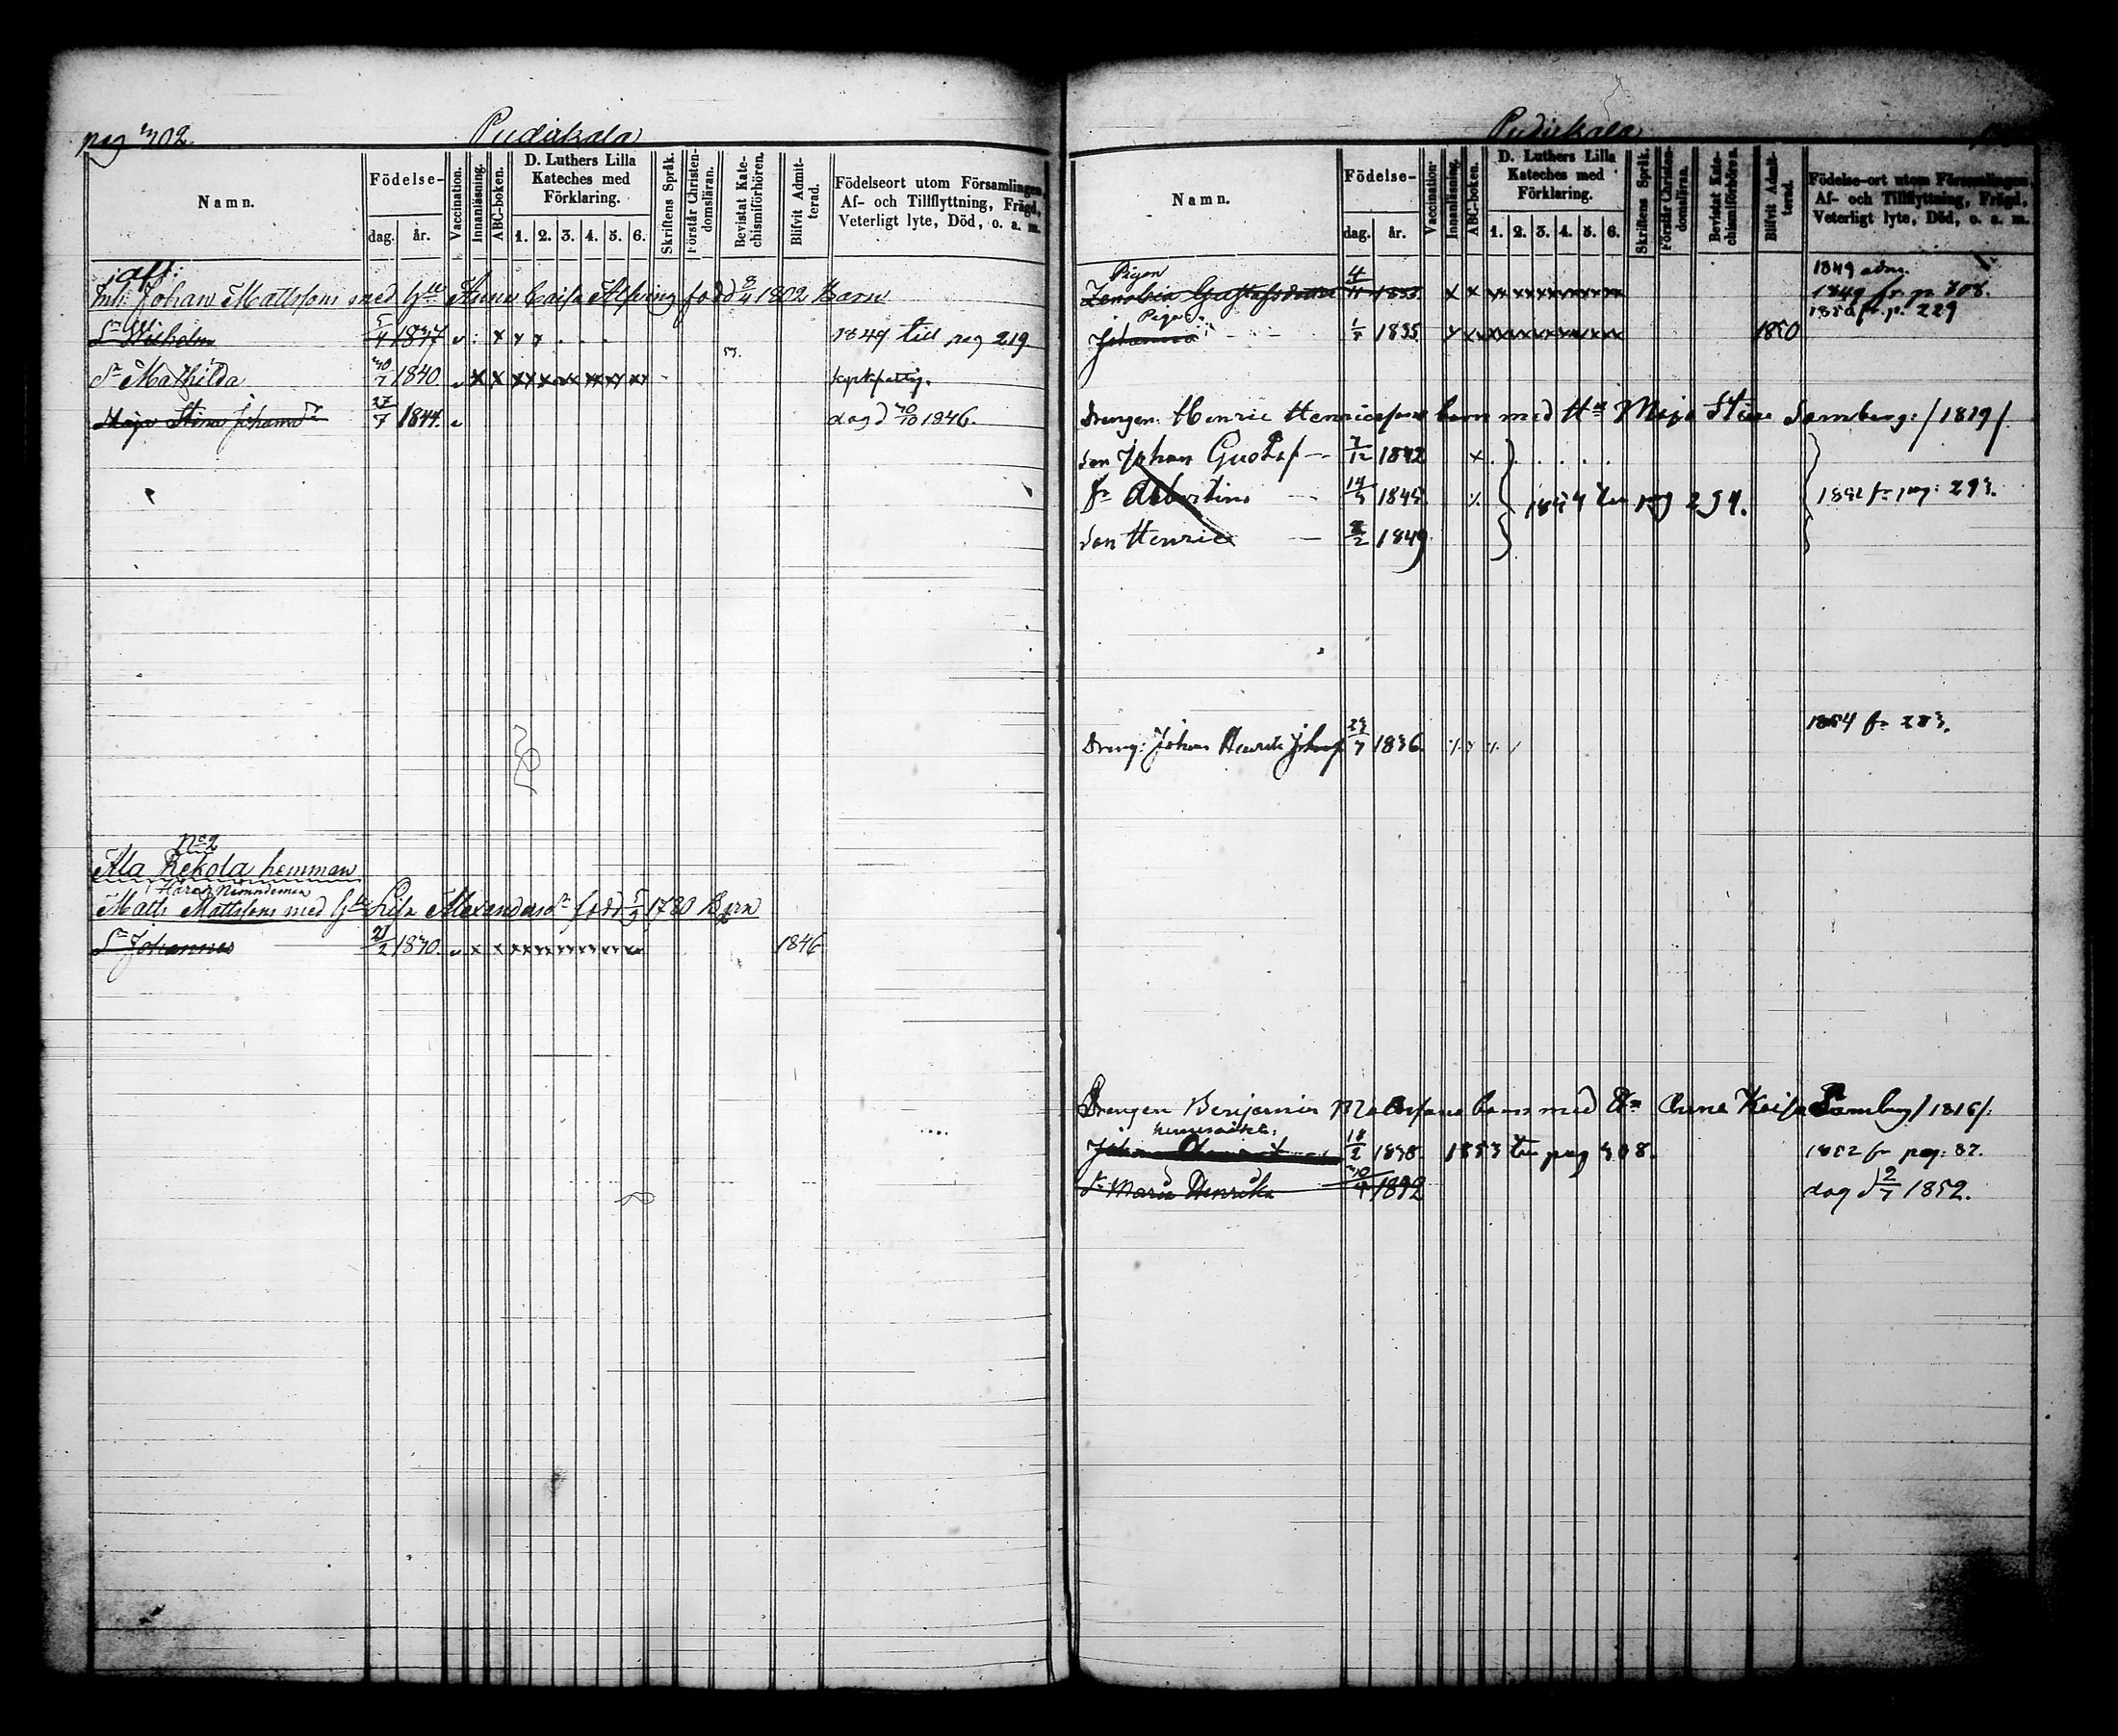 pag 302.
Pudirkala
Namn.
Födelse-
dag.
år.
Vaccination.
Innanläsning.
ABC-boken.
D. Luthers Lilla
Kateches med
Förklaring.
1. 2. 3. 4. 5. 6.
Skriftens Språk.
Förstår Christen-
domsläran.
Bevistat Kate-
chismiförhören.
Blifvit Admit-
terad.
Födelseort utom Församlingen,
Af- och Tillflyttning, Frägd,
Veterligt lyte, Död, o. a. m.
aft:
Inh: Johan Mattssons med Hu Anna Caisa född 8/4 1802 Barn
Sn Wilhelm 5/4 1837 x y y 1849 till pag 219
Dr Mathilda 30/7 1840 x x xx x xx xx xy xy
Maja Stina Johansdr 27/7 1844. dog d 30/10 1846.
No 2
Ala Rekola hemman
Härads Nämndeman
Matts Mattssons med Hu Lisa Alexandersdr född 5/9 1780 Barn
Sn Johannes 21/2 1830. x x xx xx xx xx xx 1846
Pudirkala
Namn.
Födelse-
dag.
år.
Vaccination.
Innanläsning.
ABC-boken.
D. Luthers Lilla
Kateches med
Förklaring.
1. 2. 3. 4. 5. 6.
Skriftens Språk.
Förstår Christen-
domsläran.
Bevistat Kate-
chismiförhören.
Blifvit Admit-
terad.
Födelse-ort utom Församlingen,
Af- och Tillflyttning, Frägd,
Veterligt lyte, Död, o. a. m.
1849 adm.
Pigan
Zenobia Gustafsdotter 4/11 1833 x x xx xx xx xx xx xx 1849 fr. p. 308.
1850 fr. p. 229
Pigan
Johanna 1835 1850
Drengen Henric Henricssons barn med Hu Maja Stina /1819/
Son Johan Gustaf 7/12 1842 x
dr Albertina 1845 1854 till pag 294. 1852 fr pag: 293.
Son Henric 1849
1854 fr 283.
Dreng: Johan Henrik Johans 23/7 1836
Drengen Benjamin Mattssons barn med Hu Anna Kaisa /1816/:
Johan 18/2 1838. 1853 till pag 308. 1852 fr pag: 87.
dr Maria Henrika dog d 2/7 1852.